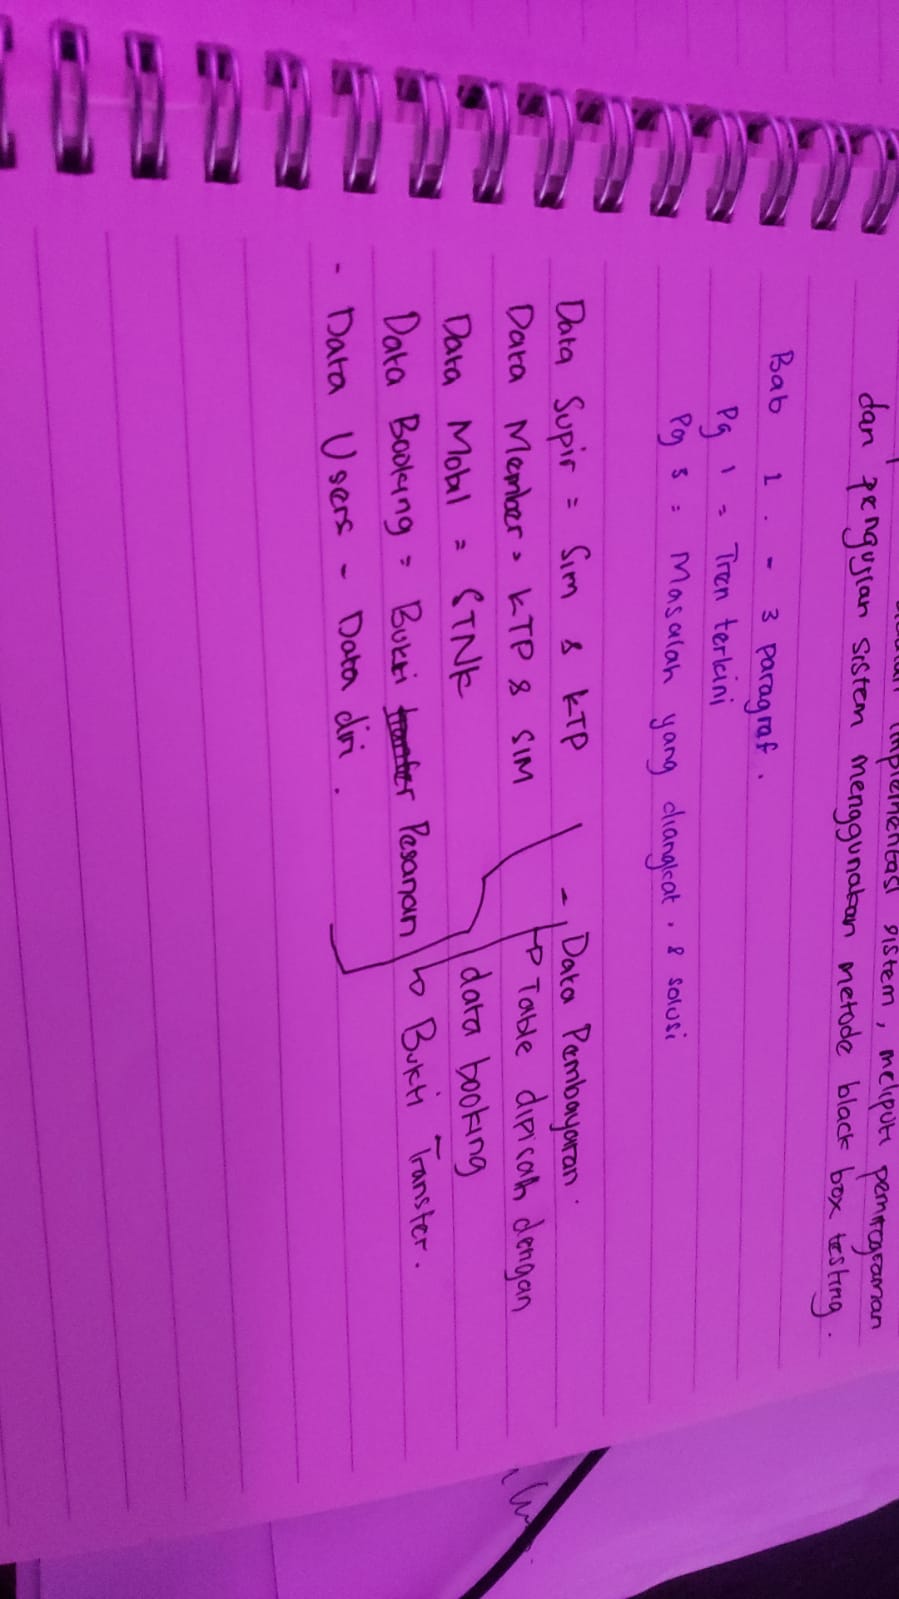 implementasi sistem, meliputi pemrograman
dan pengujian sistem menggunakan metode black box testing.
Bab 1. - 3 paragraf.
Pg 1 = Tren terkini
Pg 3 = Masalah yang diangkat. & solusi
Data Supir = Sim & KTP
Data Member = KTP & SIM
Data Mobil = STNK
Data Booking = Bukti Pesanan
- Data Users - Data diri.
- Data Pembayaran.
Table dipisah dengan
data booking
Bukti Transfer.